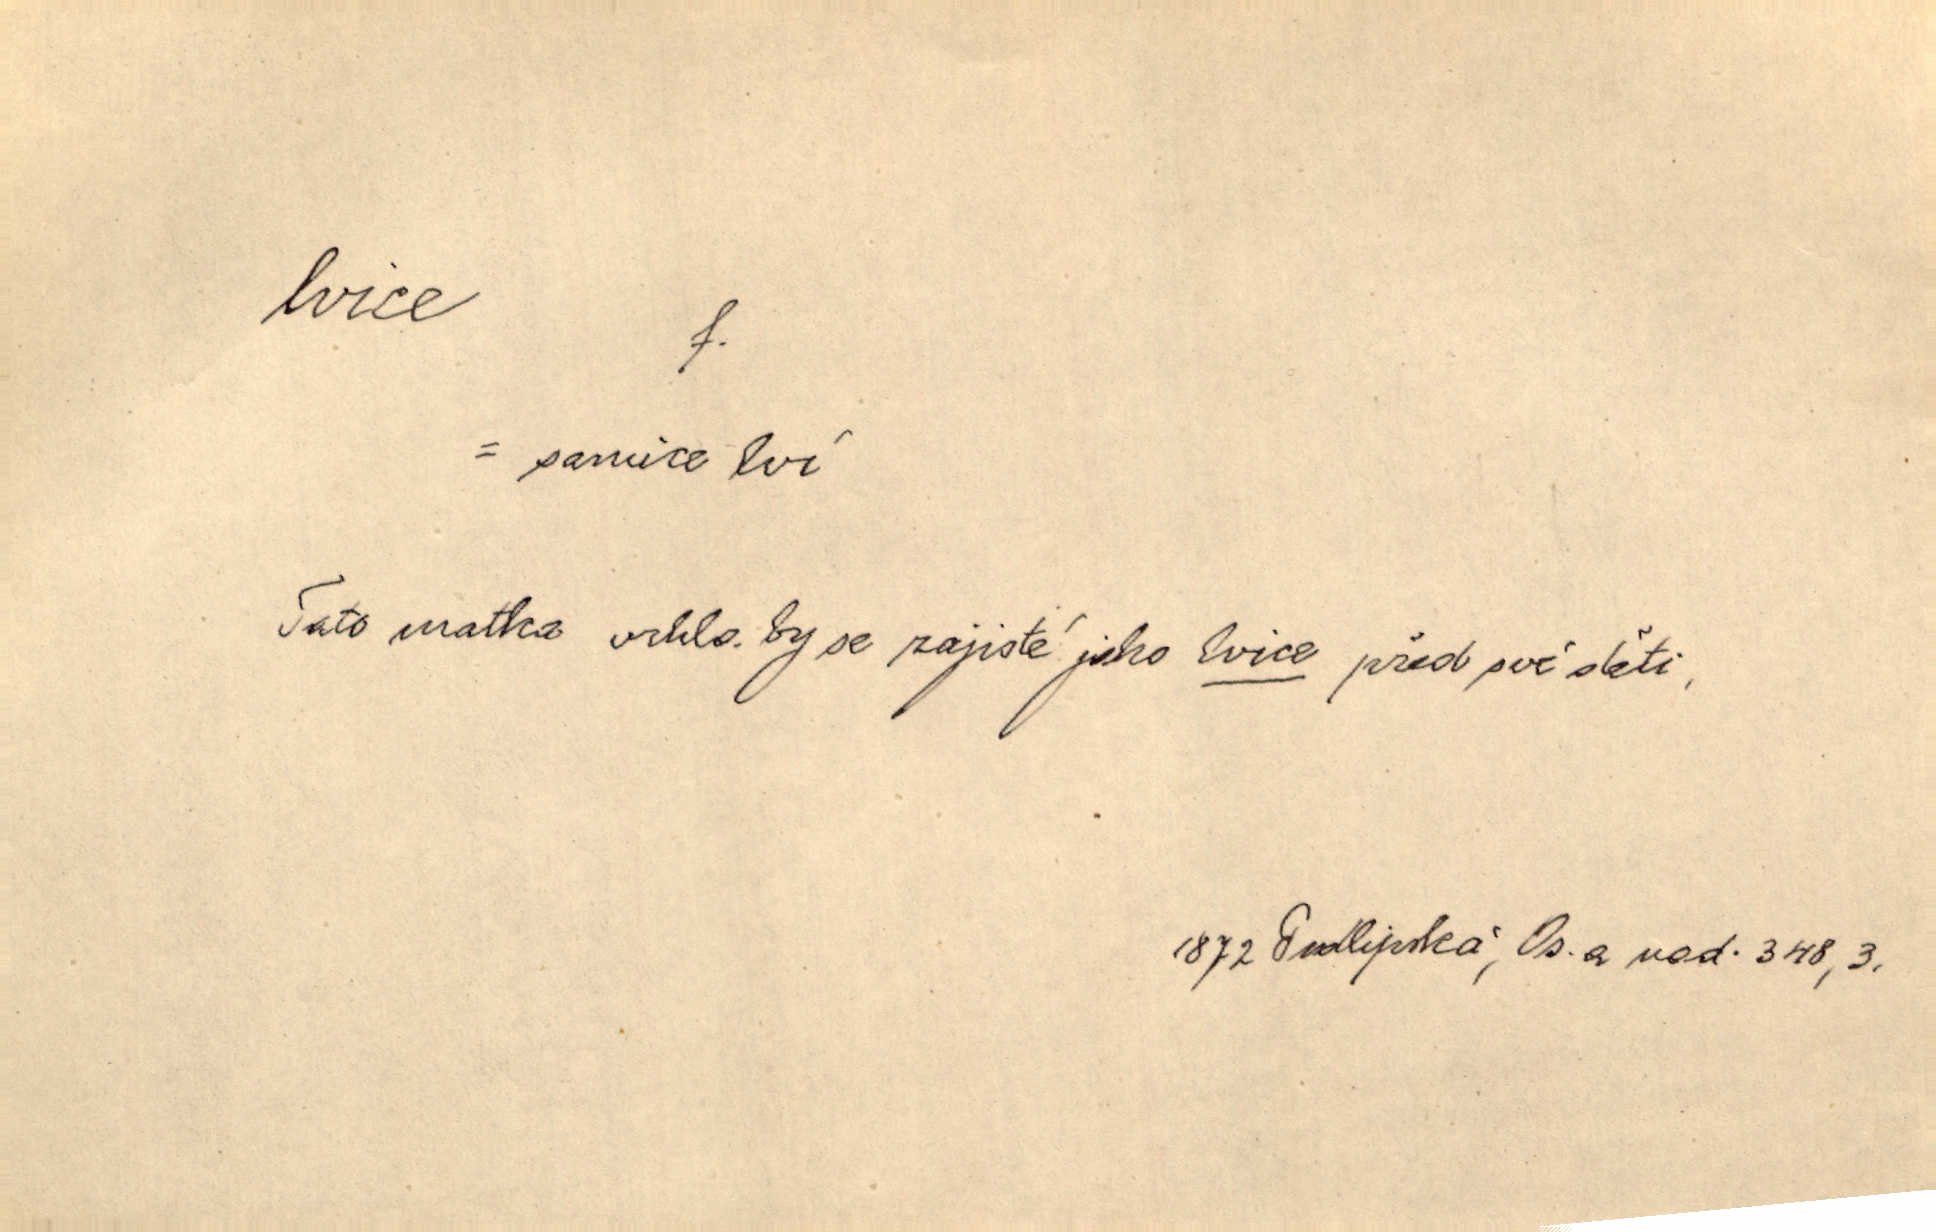 lvice
f.
= samice lví
Tato matka vrhla by se zajisté jako lvice před své děti,
1872 Podlipská, Os. a nad. 348, 3.